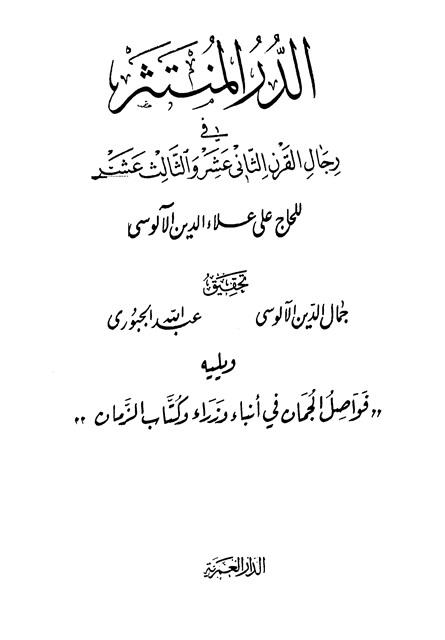 الدُّرُ المُنتَثَر
في
رجال القرن الثاني عشر والثالث عشر
للحاج علي علاء الدين الآلوسي
تحقيق
جمال الدين الآلوسي عبد الله الجبوري
ويليه
,, فَوَاصِلُ الجُمان في أنباء وزَرَاء وكُتَّاب الزَّمان ,,
الدار العربية